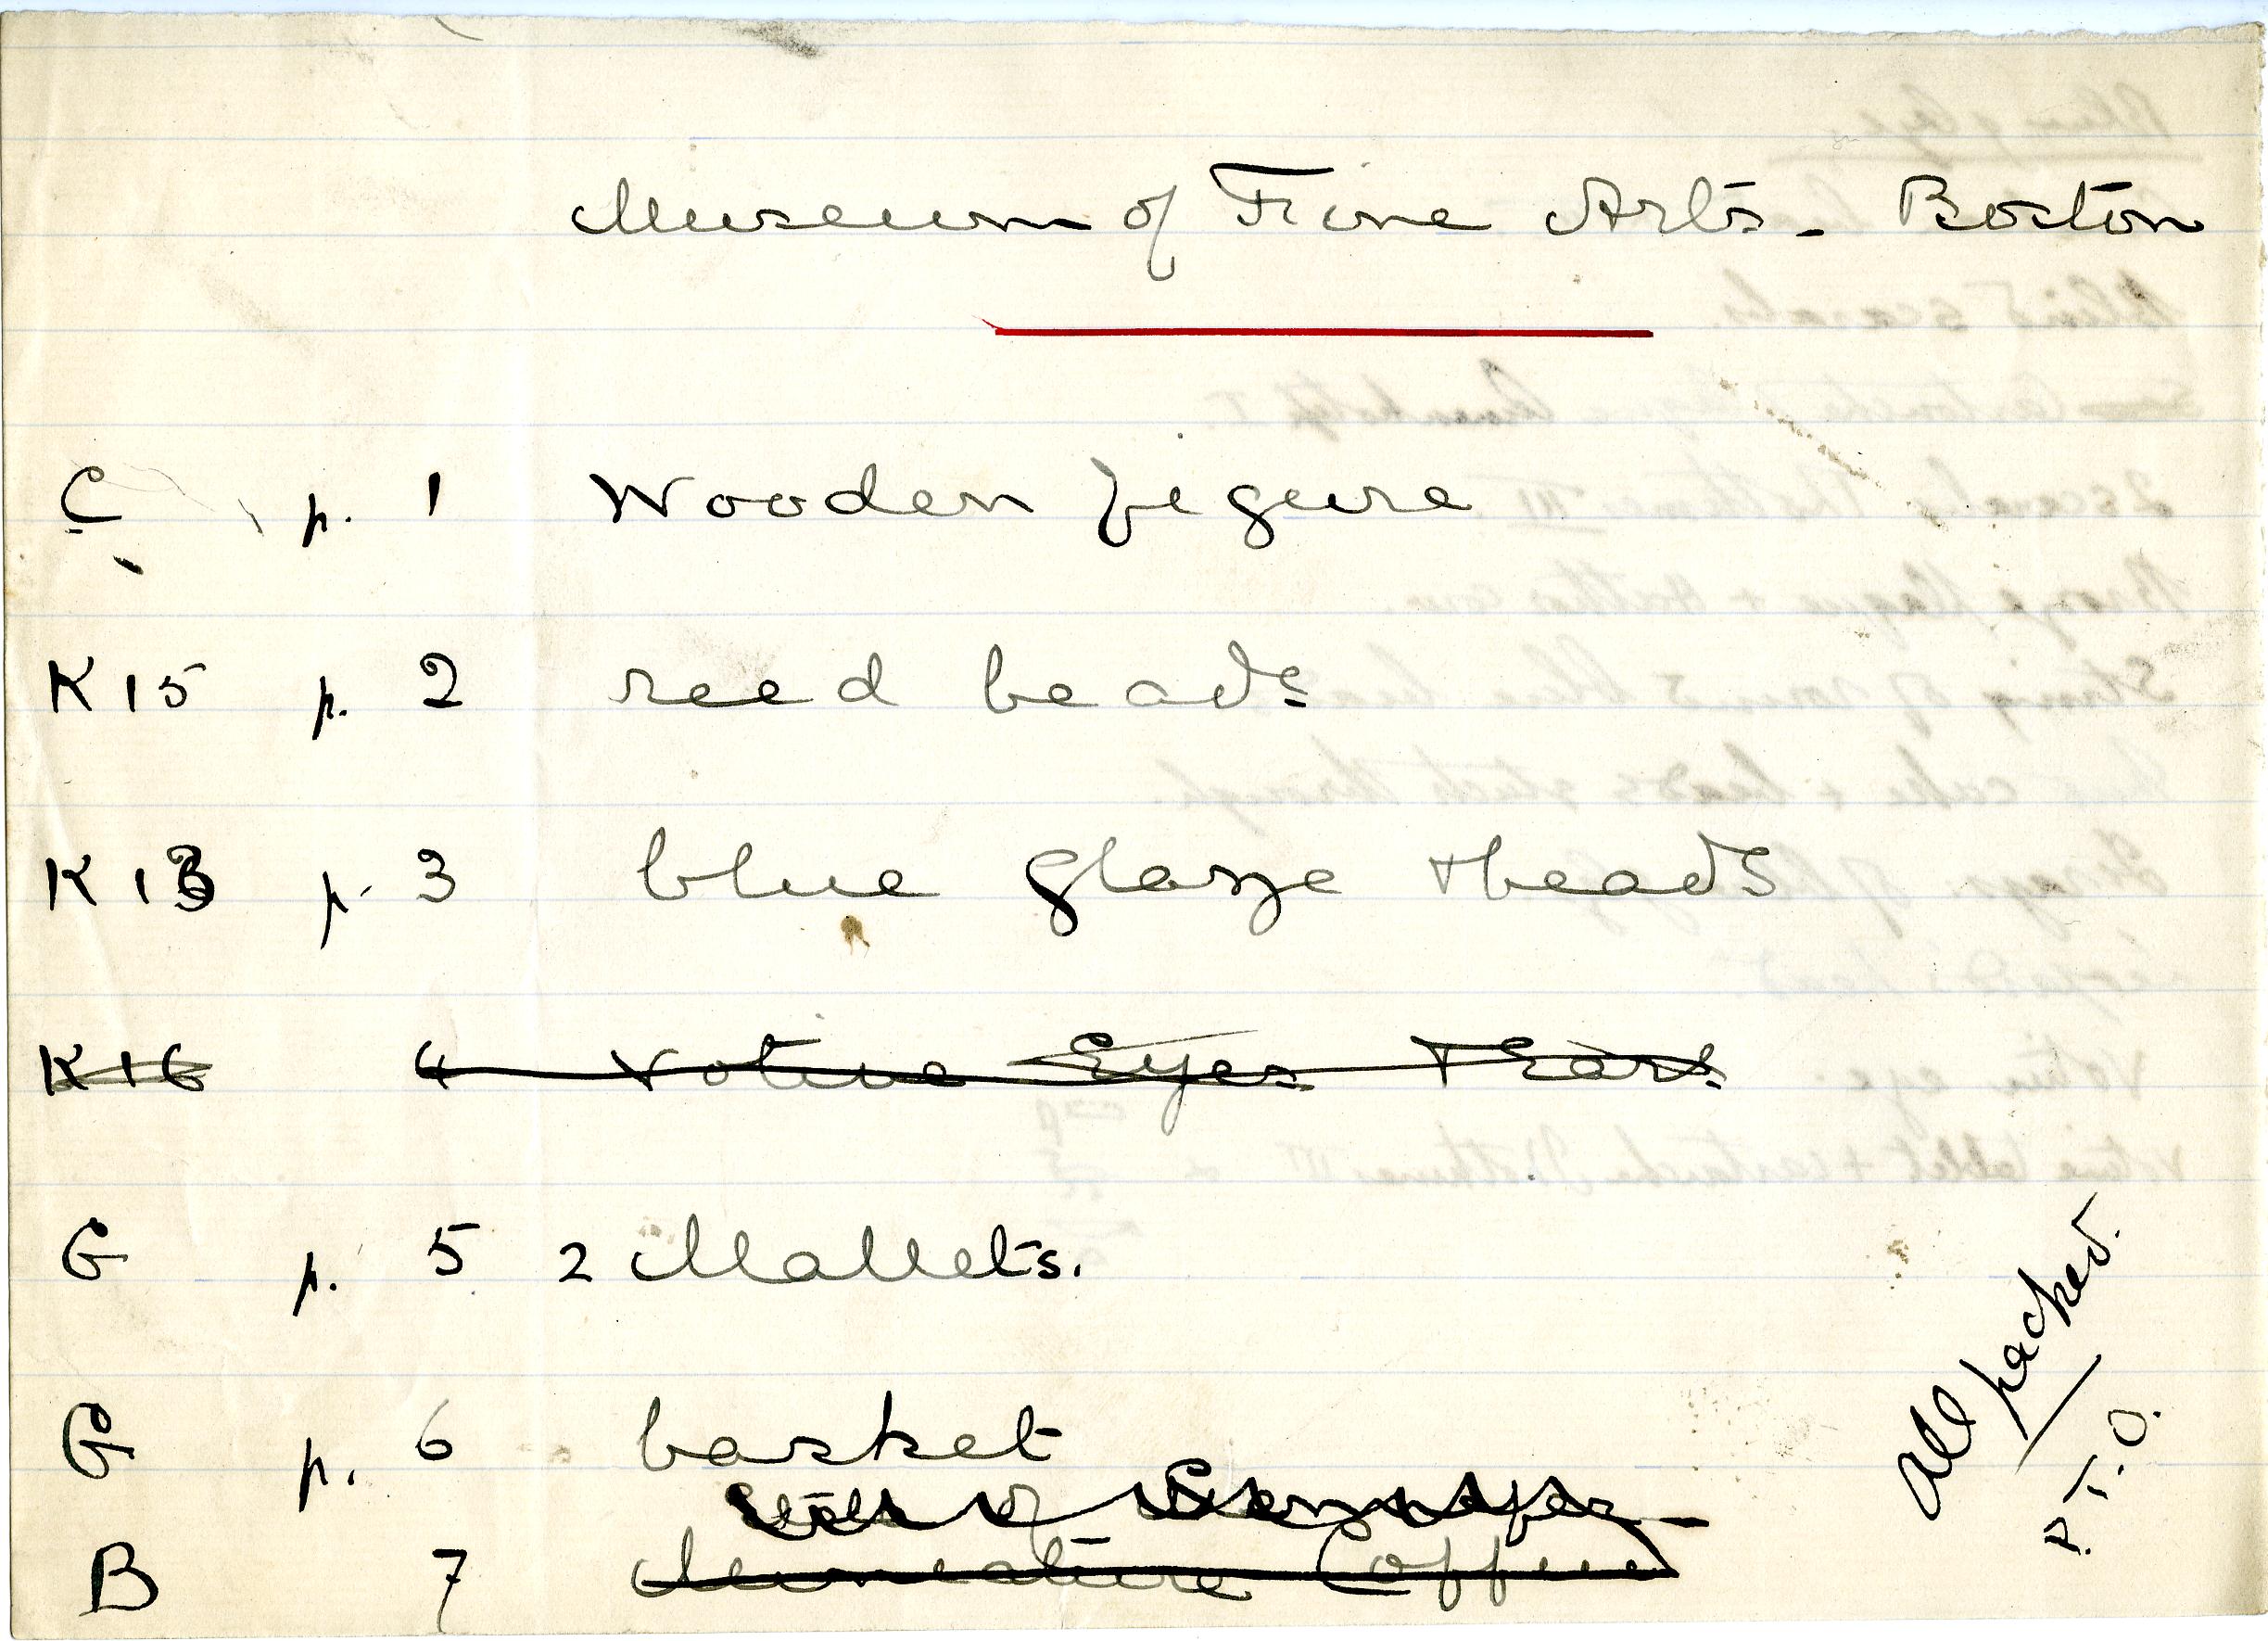 Museum of Fine Arts. Boston
C p. 1 Wooden figure
K15 p. 2 reed beads
K13 p. 3 blue glaze + beads
K16 4 Votive Eyes + Ears.
G p. 5 2 Mallets.
G p. 6 basket
of
B 7 Miniature Coffin
All packed.
P.T.O.